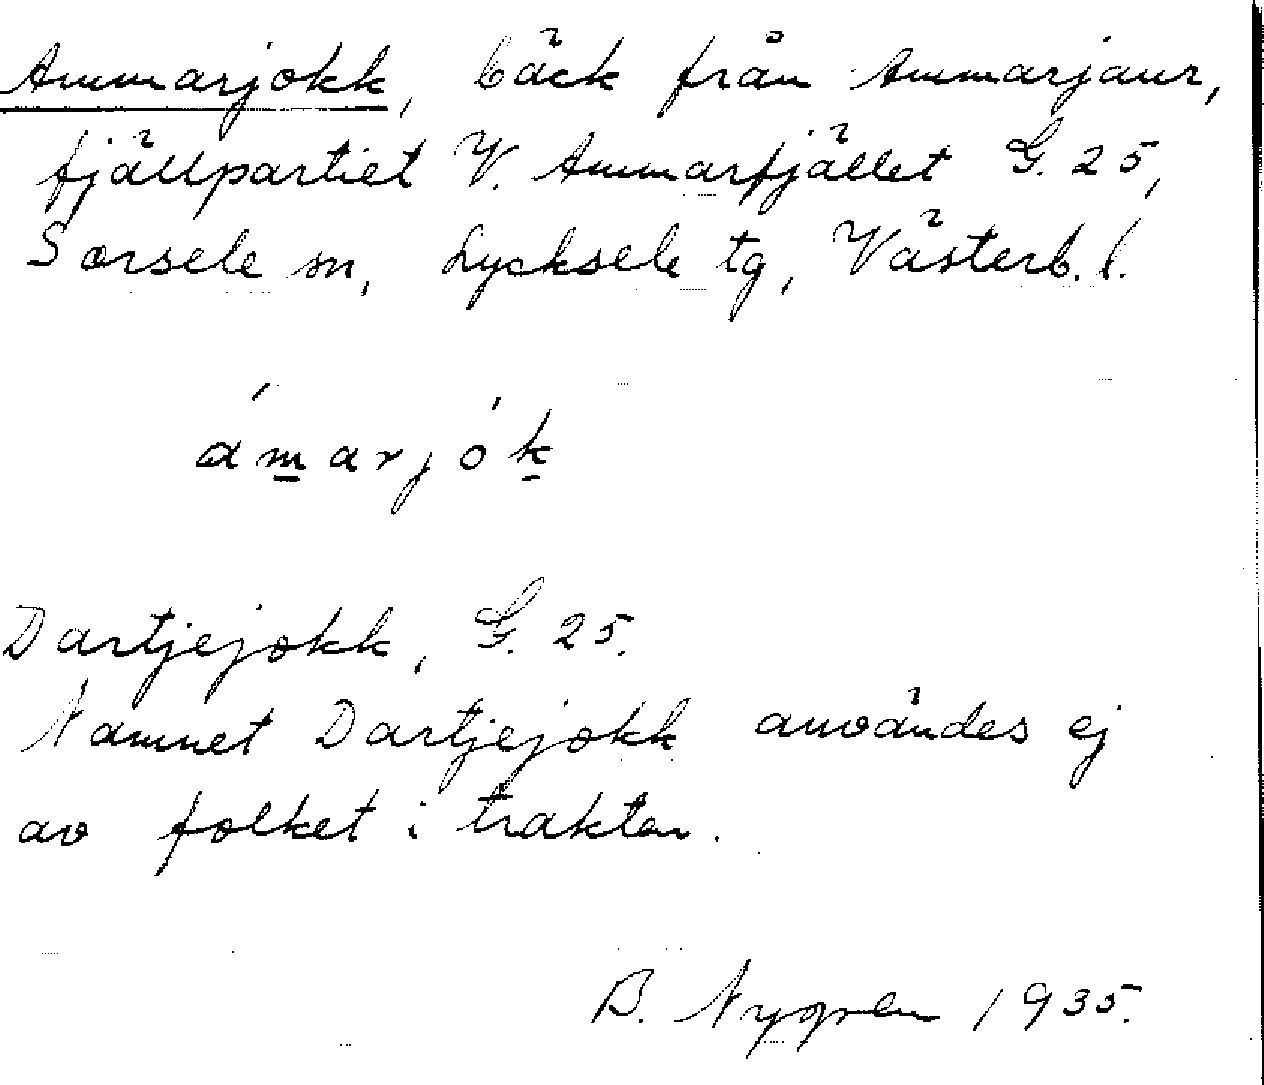 Ammarjokk, bäck från Ammarjaur,
fjällpartiet V. Ammarfjället G. 25,
Sorsele sn, Lycksele tg, Västerb. l.
ámarjók
Dartjejokk, G. 25.
Namnet Dartjejokk användes ej
av folket i trakten.
B. Nygren 1935.